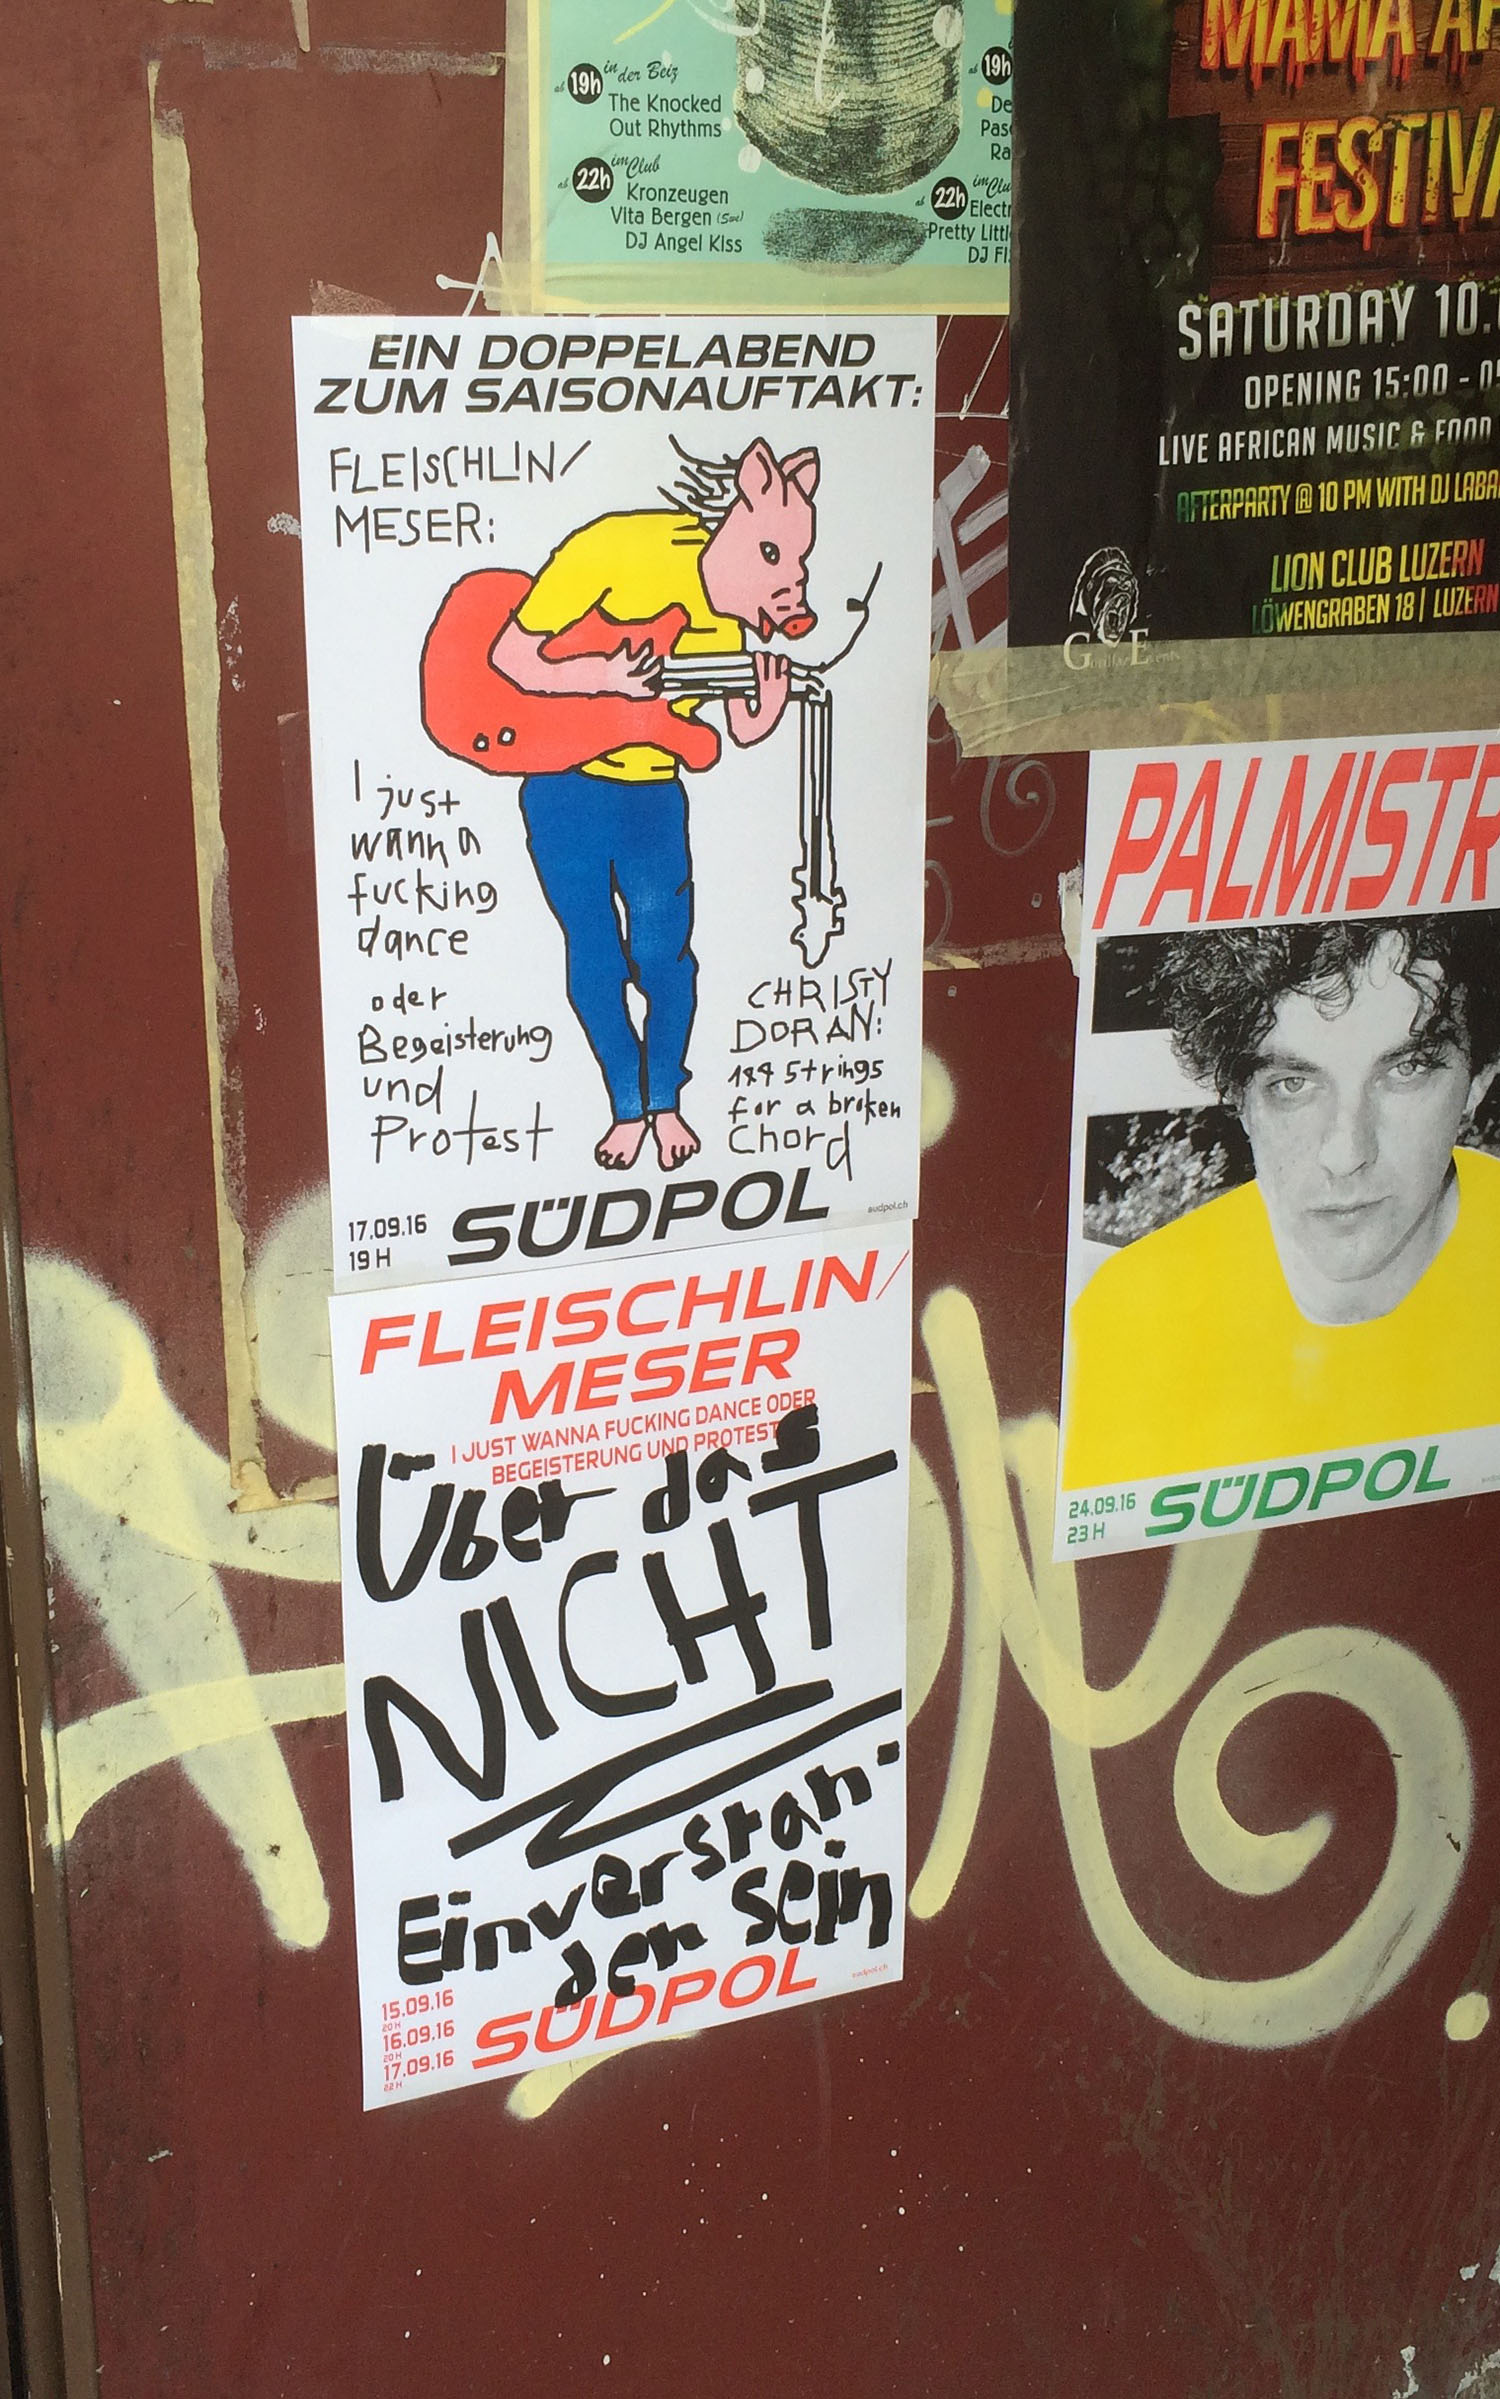 ab 19h in der Beiz
The Knocked
Out Rhythms
ab 22h im Club
Kronzeugen
Vita Bergen (Swe)
DJ Angel Kiss
ab 19h
ab 22h
Pretty
DJ
MAMA
SATURDAY 10.
OPENING 15:00 -
LIVE AFRICAN MUSIC & FOOD
AFTERPARTY @ 10 PM WITH DJ
LION CLUB LUZERN
LÖWENGRABEN 18 | LUZERN
EIN DOPPELABEND
ZUM SAISONAUFTAKT:
FLEISCHLIN/
MESER:
I just
wanna
fucking
dance
oder
Begeisterung
und
Protest
CHRISTY
DORAN:
144 Strings
for a broken
Chord
17.09.16
19 H
SÜDPOL
sudpol.ch
FLEISCHLIN/
MESER
I JUST WANNA FUCKING DANCE ODER
BEGEISTERUNG UND PROTEST
Über das
NICHT
Einverstan-
den sein
15.09.16
20 H
16.09.16
20 H
17.09.16
22 H
SÜDPOL
sudpol.ch
PALMISTR
24.09.16
23 H
SÜDPOL